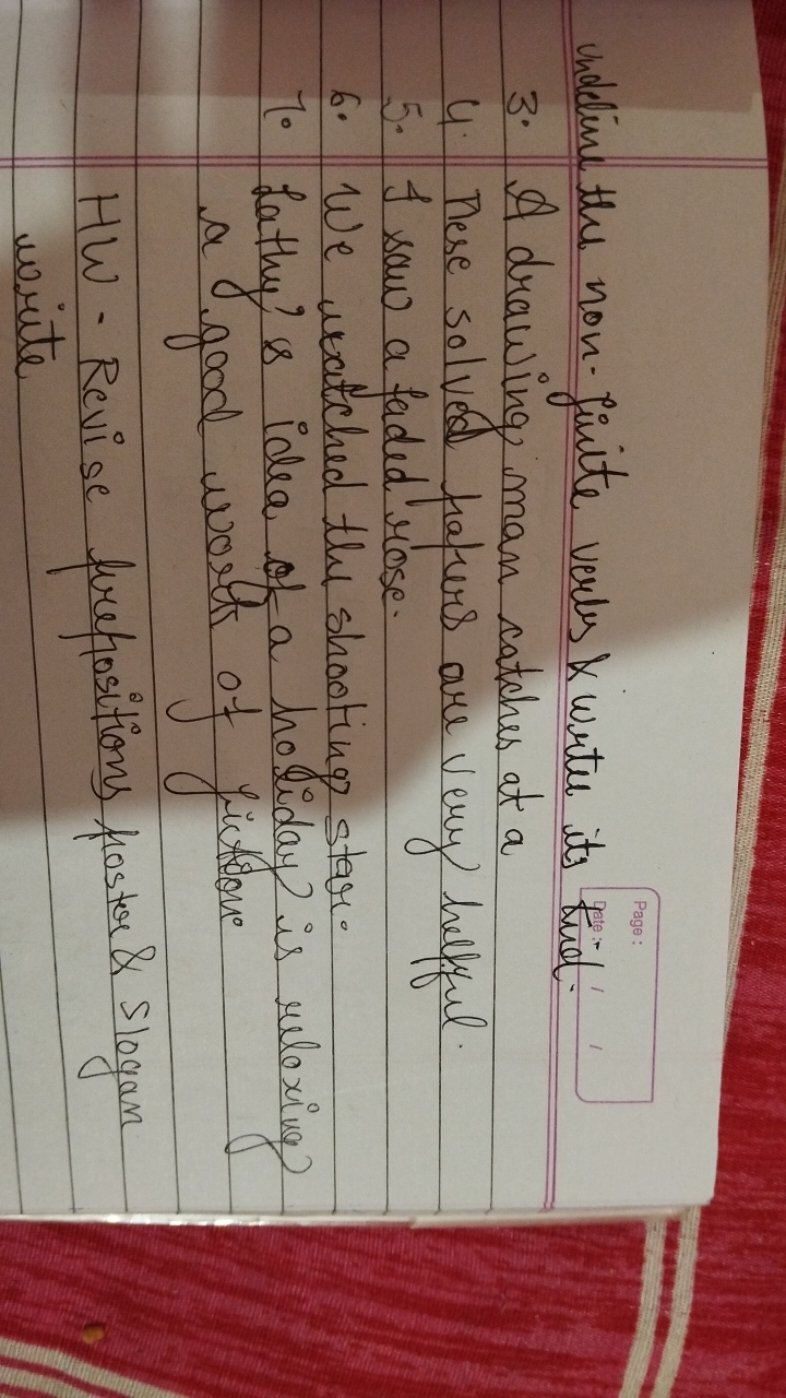 Page :
Date :- / /
Undeline the non-finite verbs & writee its kind.
3. A drawing man catches at a
4. These solved papers are very helpful.
5. I saw a faded rose.
6. We watched the shooting star.
7. Kathy's idea of a holiday is reloxing
a good work of fiction
HW - Revise prepositions, poster & Slogan
write